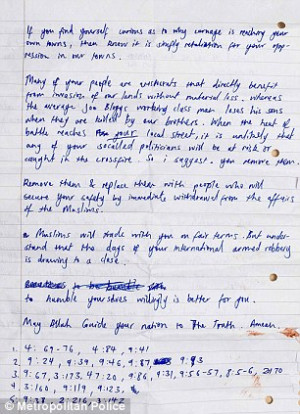 If you find yourself curious as to why carnage is reaching your
own towns, then know it is simply retaliation for your opp-
ression in our towns.
Many of your people are aristocrats that directly benefit
from invasion of our lands without material loss. whereas
the average Joe Bloggs working class man loses his sons
when they are killed by our brothers. When the heat of
battle reaches your local street, it is unlikely that
any of your socalled politicians will be at risk or
caught in the crossfire. So i suggest you remove them.
Remove them & replace them with people who will
secure your safety by immediate withdrawal from the affairs
of the Muslims.
Muslims will trade with you on fair terms. But under-
stand that the days of your international armed robbery
is drawing to a close.
to be humble
to humble yourselves willingly is better for you.
May Allah Guide your nation to The Truth. Ameen.
1. 4: 69-76, 4:84, 9:41
2. 9:24, 9:39, 9:46, 9:87, 9:93
3. 9:67, 3:173, 47:20, 9:86, 9:31, 9:56-57, 8:5-6,
4. 3:160, 9:119, 9:123,
5. 9:38, 2:216, 3:142
© Metropolitan Police